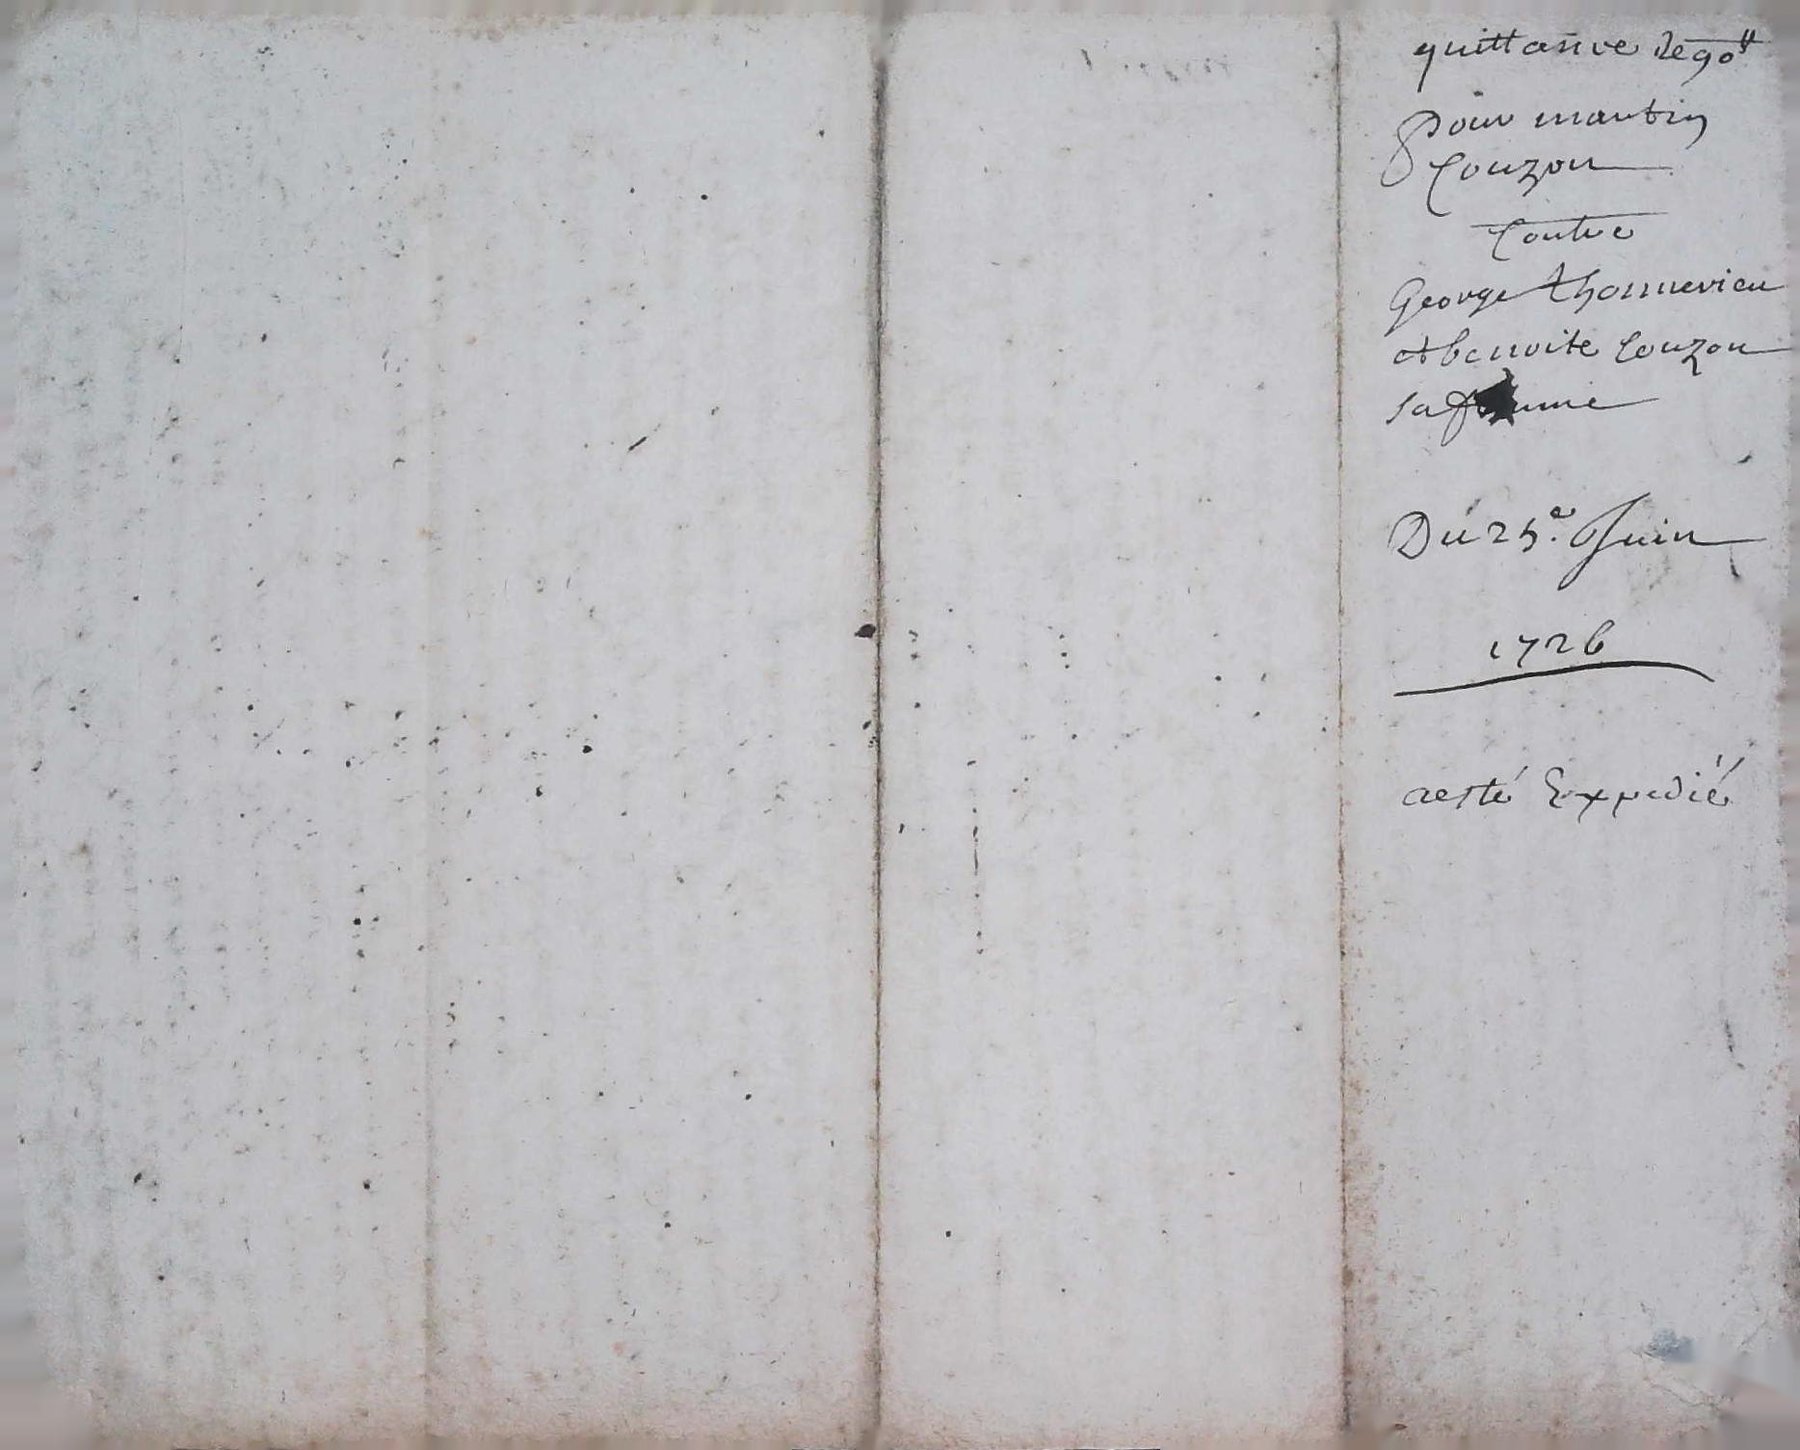 quittance de 90ᵗᵗ
Pour martin
Couzon
Contre
George thonnerieu
et benoite Couzon
sa femme
Du 25.e Juin
1726
aesté Expedié